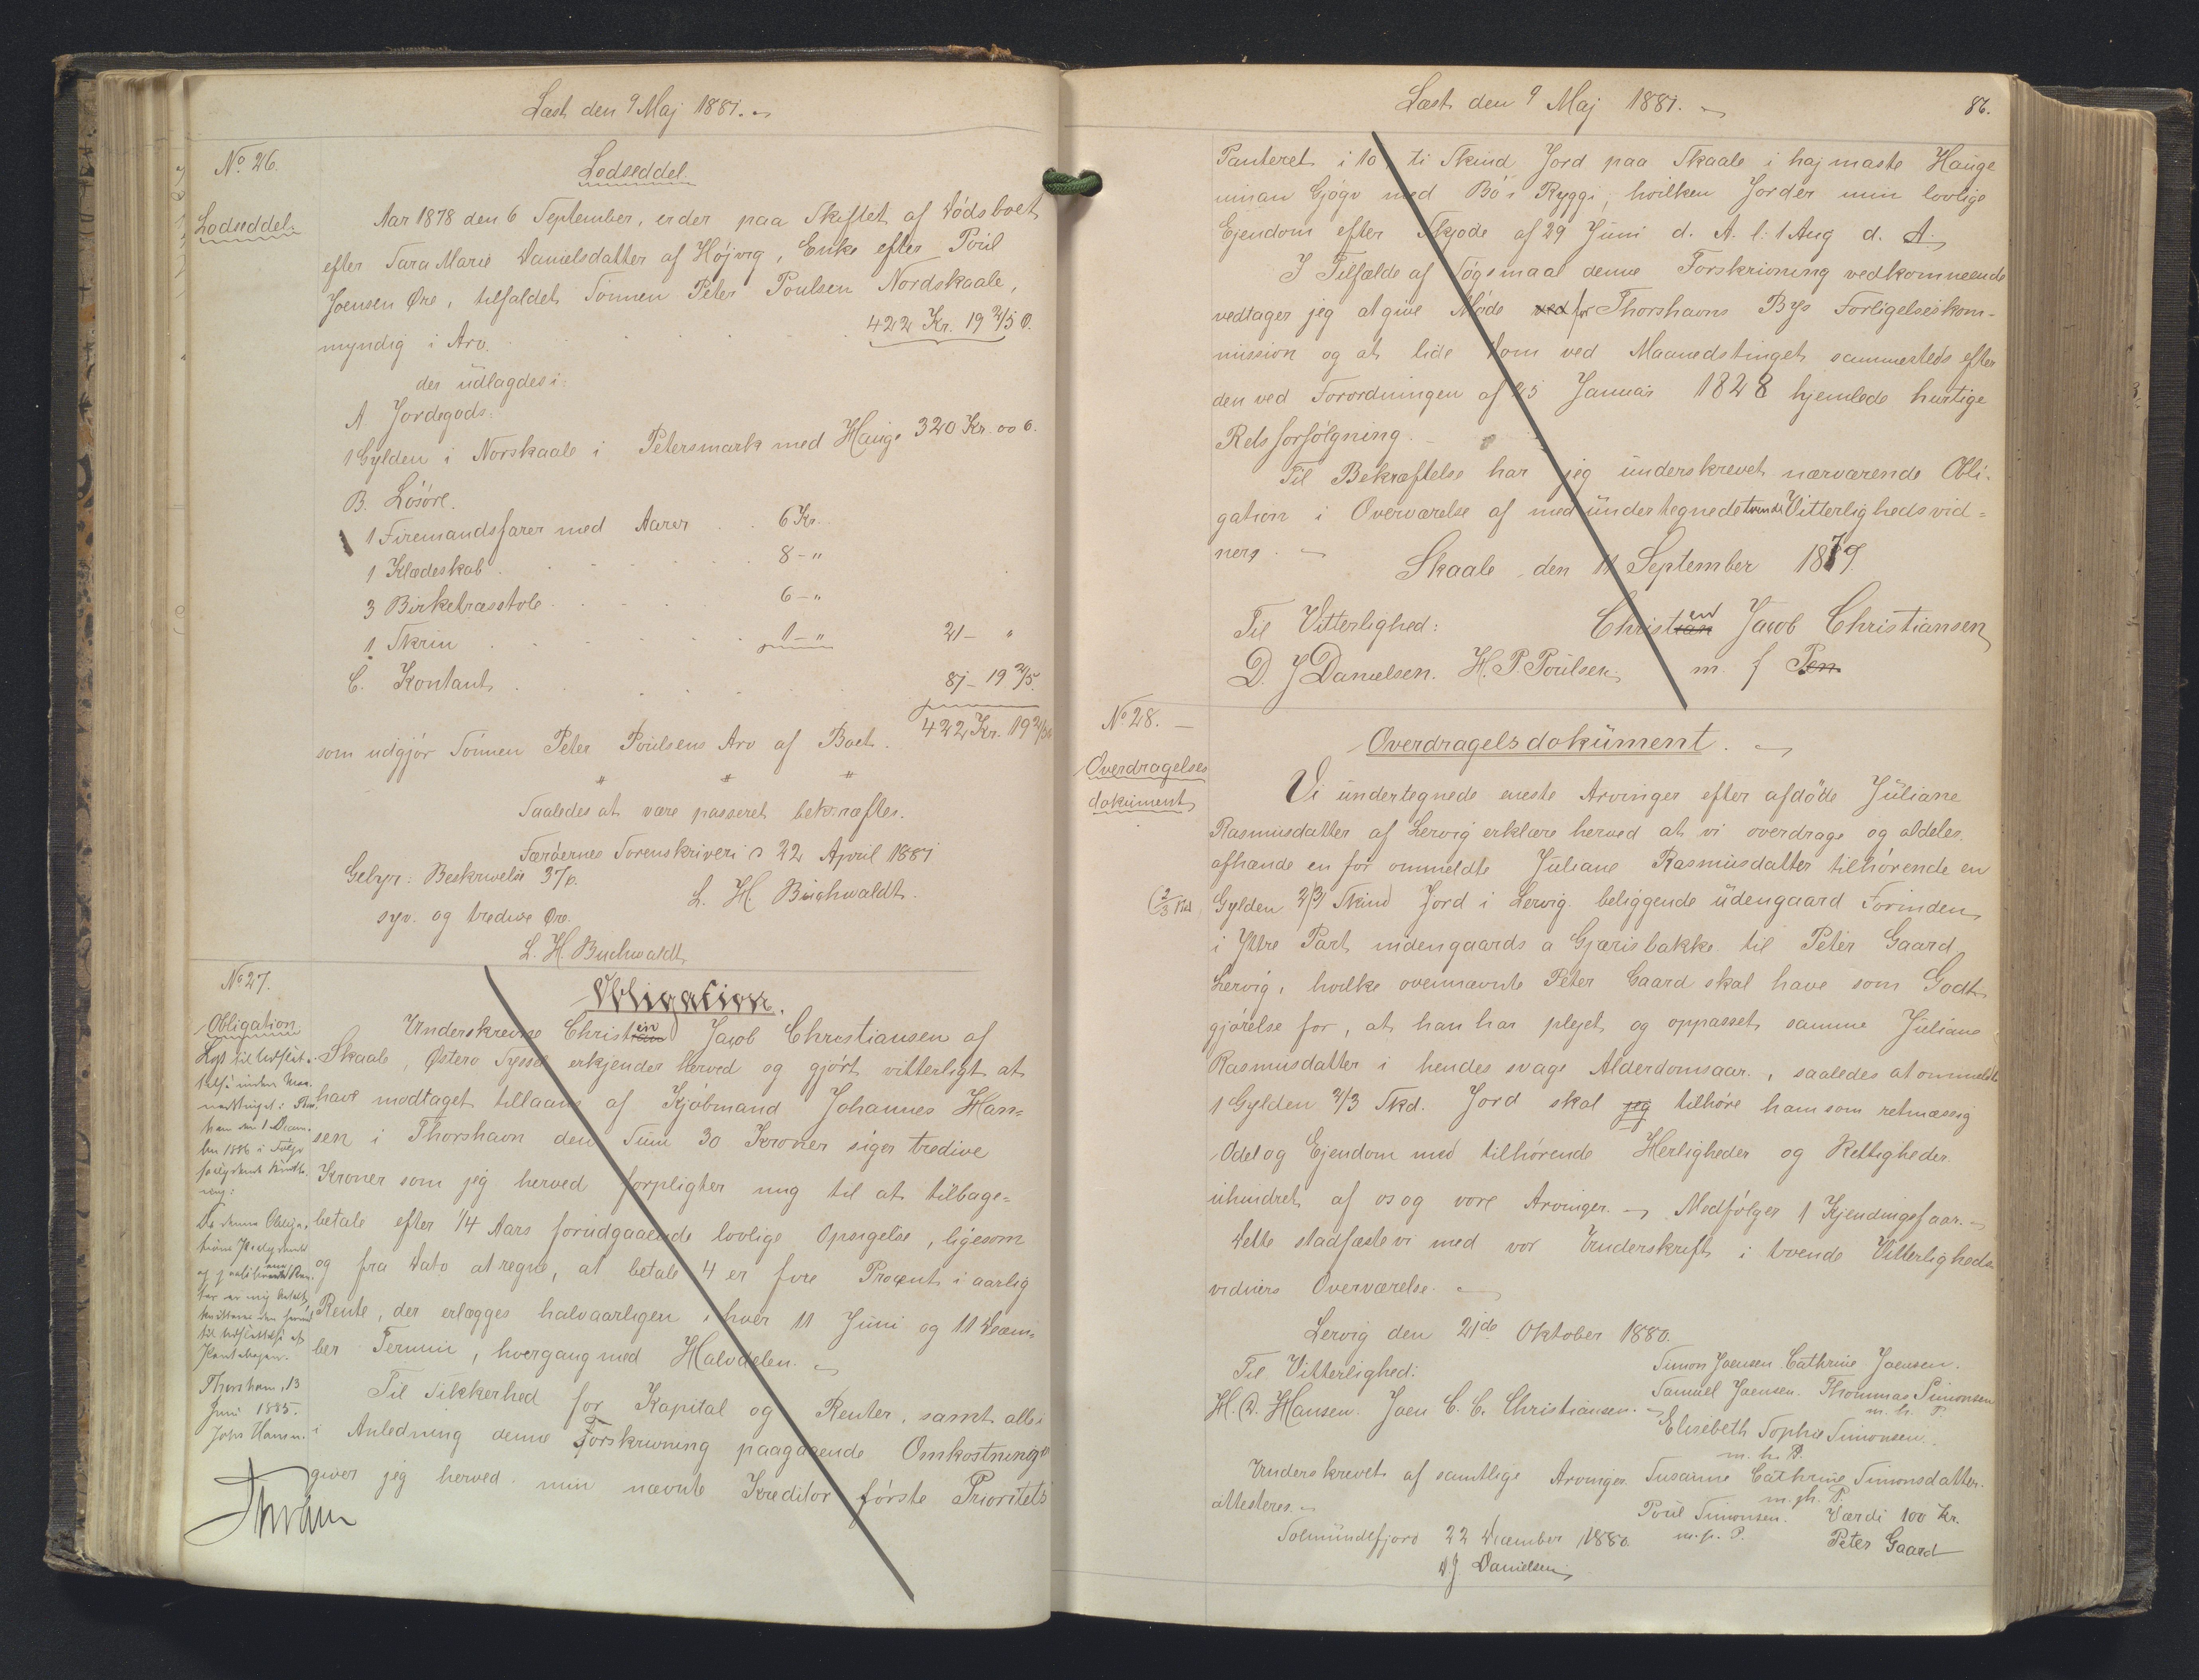 Læst den 9 Maj 1881.
No 26.
Lodseddel.
Lodseddel.
Aar 1878 den 6 September, er der paa Skiftet af Dödsboet
efter Sara Marie Danielsdatter af Höjvig, Enke efter Poül
Joensen Öre, tilfaldet Sönnen Peter Poulsen Nordskaale,
myndig i Arv. 422 Kr. 19 2/5 Ö.
der üdlagdes i:
A Jordegods:
1 Gylden i Norskaale i Petersmark med Hauge 320 Kr. 00 ö.
B. Lösöre.
1 Firemandsfarer med Aarer . . 6 Kr.
1 Klædeskab . . . 8 - "
3 Birketræsstole . . . 6 - "
1 Skrin . . . 1 - " 21 - "
C. Kontant . . . 81 - 19 2/5.
422 Kr. 19 2/5 ö
som udgjör Sönnen Peter Poülsens Arv af Boet.
" " "
Saaledes at være passeret bekræftes.
Færöernes Sorenskriveri d 22 April 1881
Gebyr: Beskrivelse 37 ö. L. H. Büchwaldt.
syv og tredive Öre.
L. H. Buchwaldt
No 27.
Obligation.
Obligation
Underskrevne Christian en Jacob Christiansen af
Skaale, Østerø Syssel erkjender herved og gjört vitterligt at
have modtaget tillaans af Kjöbmand Johannes Han=
sen i Thorshavn den Süm 30 Kroner siger tredive
Kroner som jeg herved forpligter mig til at tilbage=
betale efter 1/4 Aars forüdgaaende lovlige Opsigelse, ligesom
og fra Dato at regne, at betale 4 er fire Procent i aarlig
Rente, der erlægges halvaarligen i hver 11 Jüni og 11 Decem=
ber Termin, hvergang med Halvdelen.
Til Sikkerhed for Kapital og Renter, samt alle i
i Anledning denne Forskrivning paagaaende Omkostninger
giver jeg herved min nævnte Kreditor förste Prioritets
Lyst til Udslet-
telse inden Maa-
nedstinget i Thors-
havn den 1 Decem-
ber 1886 i Følge
saalydende Kvitte-
ring:
Da denne Obliga-
tions Paalydende
og Renter
er mig betalt
kvitteres den herved
til Udslettelse af
Pantebogen.
Thorshavn, 13
Juni 1885.
Johs Hansen.
Læst den 9 Maj 1881. 86.
Panteret i 10 ti Skind Jord paa Skaale i høj maste Haüge
innan Gjögv med Bö i Ryggi, hvilken Jorder min lovlige
Ejendom efter Skjöde af 29 Jüni d. A. l. 1 Aug d. A.
I Tilfælde af Sögsmaal denne Forskrivning vedkommende
vedtager jeg at give Möde ved for Thorshavns Bys Forligelseskom-
mission og at lide Dom ved Maanedstinget sammesteds efter
den ved Forordningen af 25 Januar 1828 hjemlede hurtige
Retsforfölgning.
Til Bekræftelse har jeg ünderskrevet nærværende Obli-
gation i Overværelse af med ündertegnede tvende Vitterlighedsvid=
ner.
Skaale den 11 September 1879
Til Vitterlighed: Christian en Jacob Christiansen
D. J Danielsen. H. P. Poülsen m. f Pen
No 28.
Overdragelses
dokument
Overdragelsdoküment.
Vi ündertegnede eneste Arvinger efter afdöde Jüliane
Rasmüsdatter af Lervig erklære herved at vi overdrage og aldeles
afhænde en för ommeldte Juliane Rasmüsdatter tilhörende en
(2/3 Skd) Gylden 2/3 Skind Jord i Lervig beliggende üdengaard Forinden
i Yttre Part indengaards a Gjærisbakke til Peter Gaard
Lervig, hvilke ovennævnte Peter Gaard skal have som Godt-
gjörelse for, at han har plejet og oppasset samme Jüliane
Rasmüsdatter i hendes svage Alderdomsaar, saaledes at ommeldte
1 Gylden 2/3 Skd. Jord skal jeg tilhöre ham som retmæssig
Odel og Ejendom med tilhörende Herligheder og Rettigheder
ühindret af os og vore Arvinger. Medfölger 1 Kjendingsfaar.
Dette stadfæste vi med vor Ünderskrift i tvende Vitterligheds
vidners Overværelse.
Lervig den 21de Oktober 1880.
Til Vitterlighed: Simon Joensen Cathrine Joensen.
H. D. Hansen. Joen C. C. Christiansen. Samüel Joensen. Thommas Simonsen
m. h. P.
Elisebeth Sophie Simonsen.
m. h. P.
Underskrevet af samtlige Arvinger Susanne Cathrine Simonsdatter.
attesteres. m. ph. P.
Poül Simonsen. Værdi 100 Kr.
Solmündefjord 22 December 1880. m. p. P. Peter Gaard
D J Danielsen